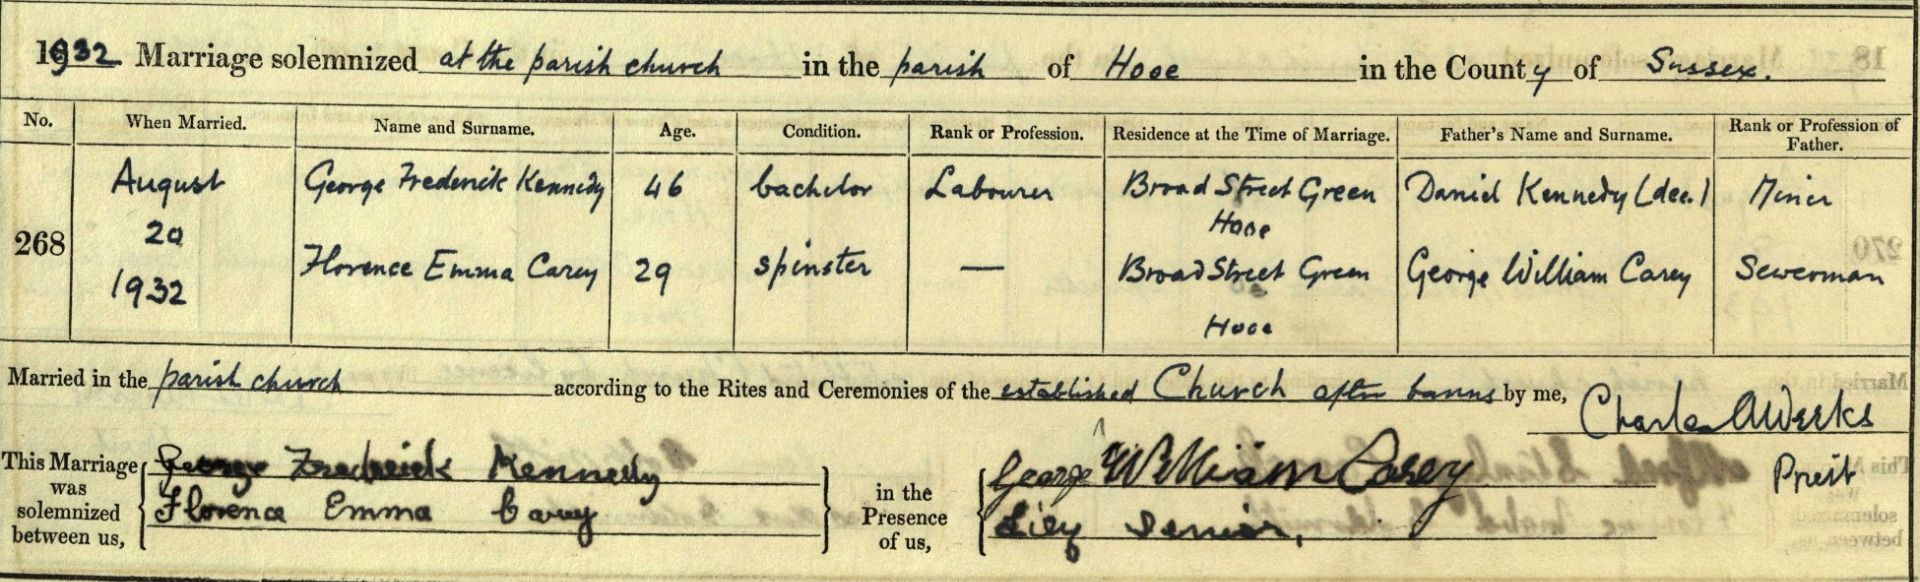 1932 Marriage solemnized at the parish church in the parish of Hooe in the County of Sussex.
No. When Married. Name and Surname. Age. Condition. Rank or Profession. Residence at the Time of Marriage. Father's Name and Surname. Rank or Profession of Father.
268 August 20 1932
George Frederick Kennedy 46 bachelor Labourer Broad Street Green Hooe Daniel Kennedy (dec.) Miner
Florence Emma Carey 29 spinster — Broad Street Green Hooe George William Carey Sewerman
Married in the parish church according to the Rites and Ceremonies of the established Church after banns by me, Charles A Werks
Priest
This Marriage was solemnized between us,
George Frederick Kennedy
Florence Emma Carey
in the Presence of us,
George William Carey
Lily Senior.